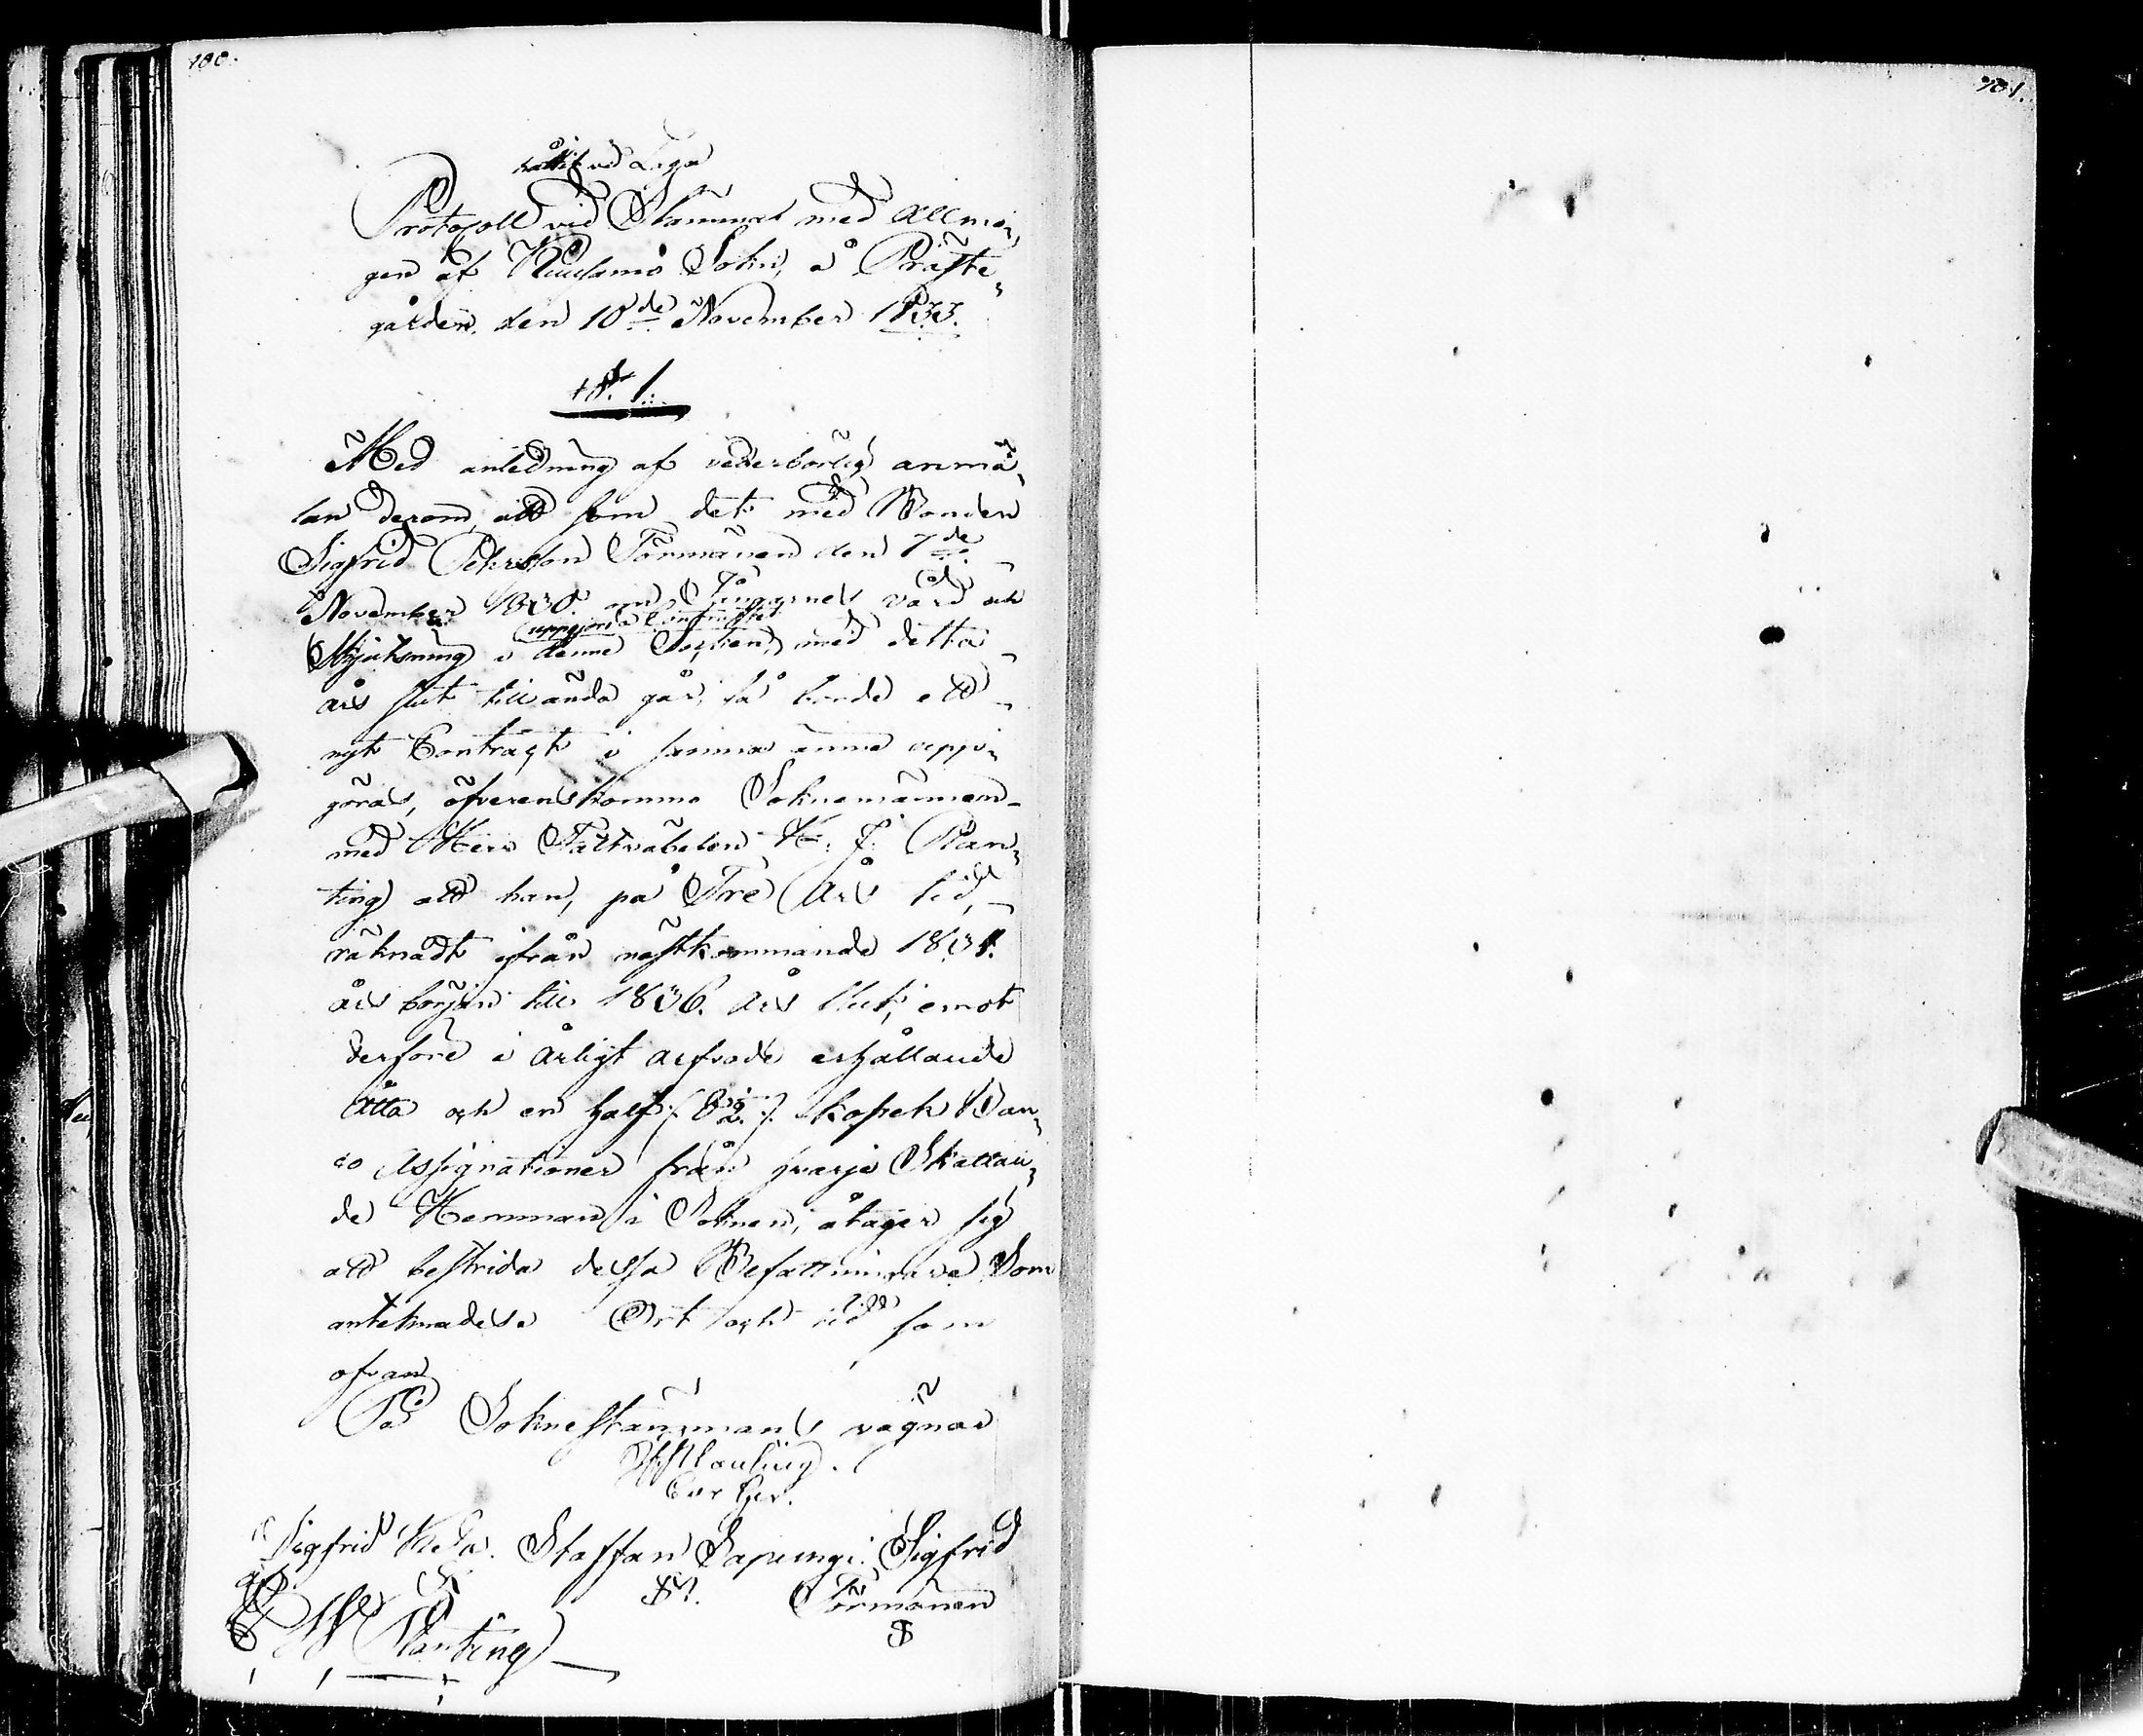 100.
101.
hållit vid Laga
Protocoll vid Stämma med Allmo-
gen af Kuusamo Sokn, å Präste-
gården, den 10de November 1833.
§. 1.
Med anledning af vederbörlig anmä-
lan derom, att som det med Bonden
Sigfrid Pehrsson Törmänen den 7de
November 1830. om Fångarnes vård och
uppgjorda Contractet
Skjutsning i denne Socken, med detta
års slut till ända går, så borde ett
nytt Contract i samma ämne upp-
göras, öfverenskommo Soknemännen
med Herr Fältväbelen H. J. Plan-
ting att han, på Tre Års tid,
räknadt ifrån nästkommande 1834.
års början till 1836. års slut, emot
derföre i årligt arfvode erhållande
Åtta och en half /: 8½ :/ kopek Ban-
co Assignationer från hvarje Skattan-
de Hemman i Soknen, åtager sig
att bestrida dessa Befattningar. Som
antecknades. Ort och tid som
ofvan
På Soknestämmans vägnar
Cur Ger.
Sigfrid Kela. Staffan Sapungi. Sigfrid
Törmänen
Planting